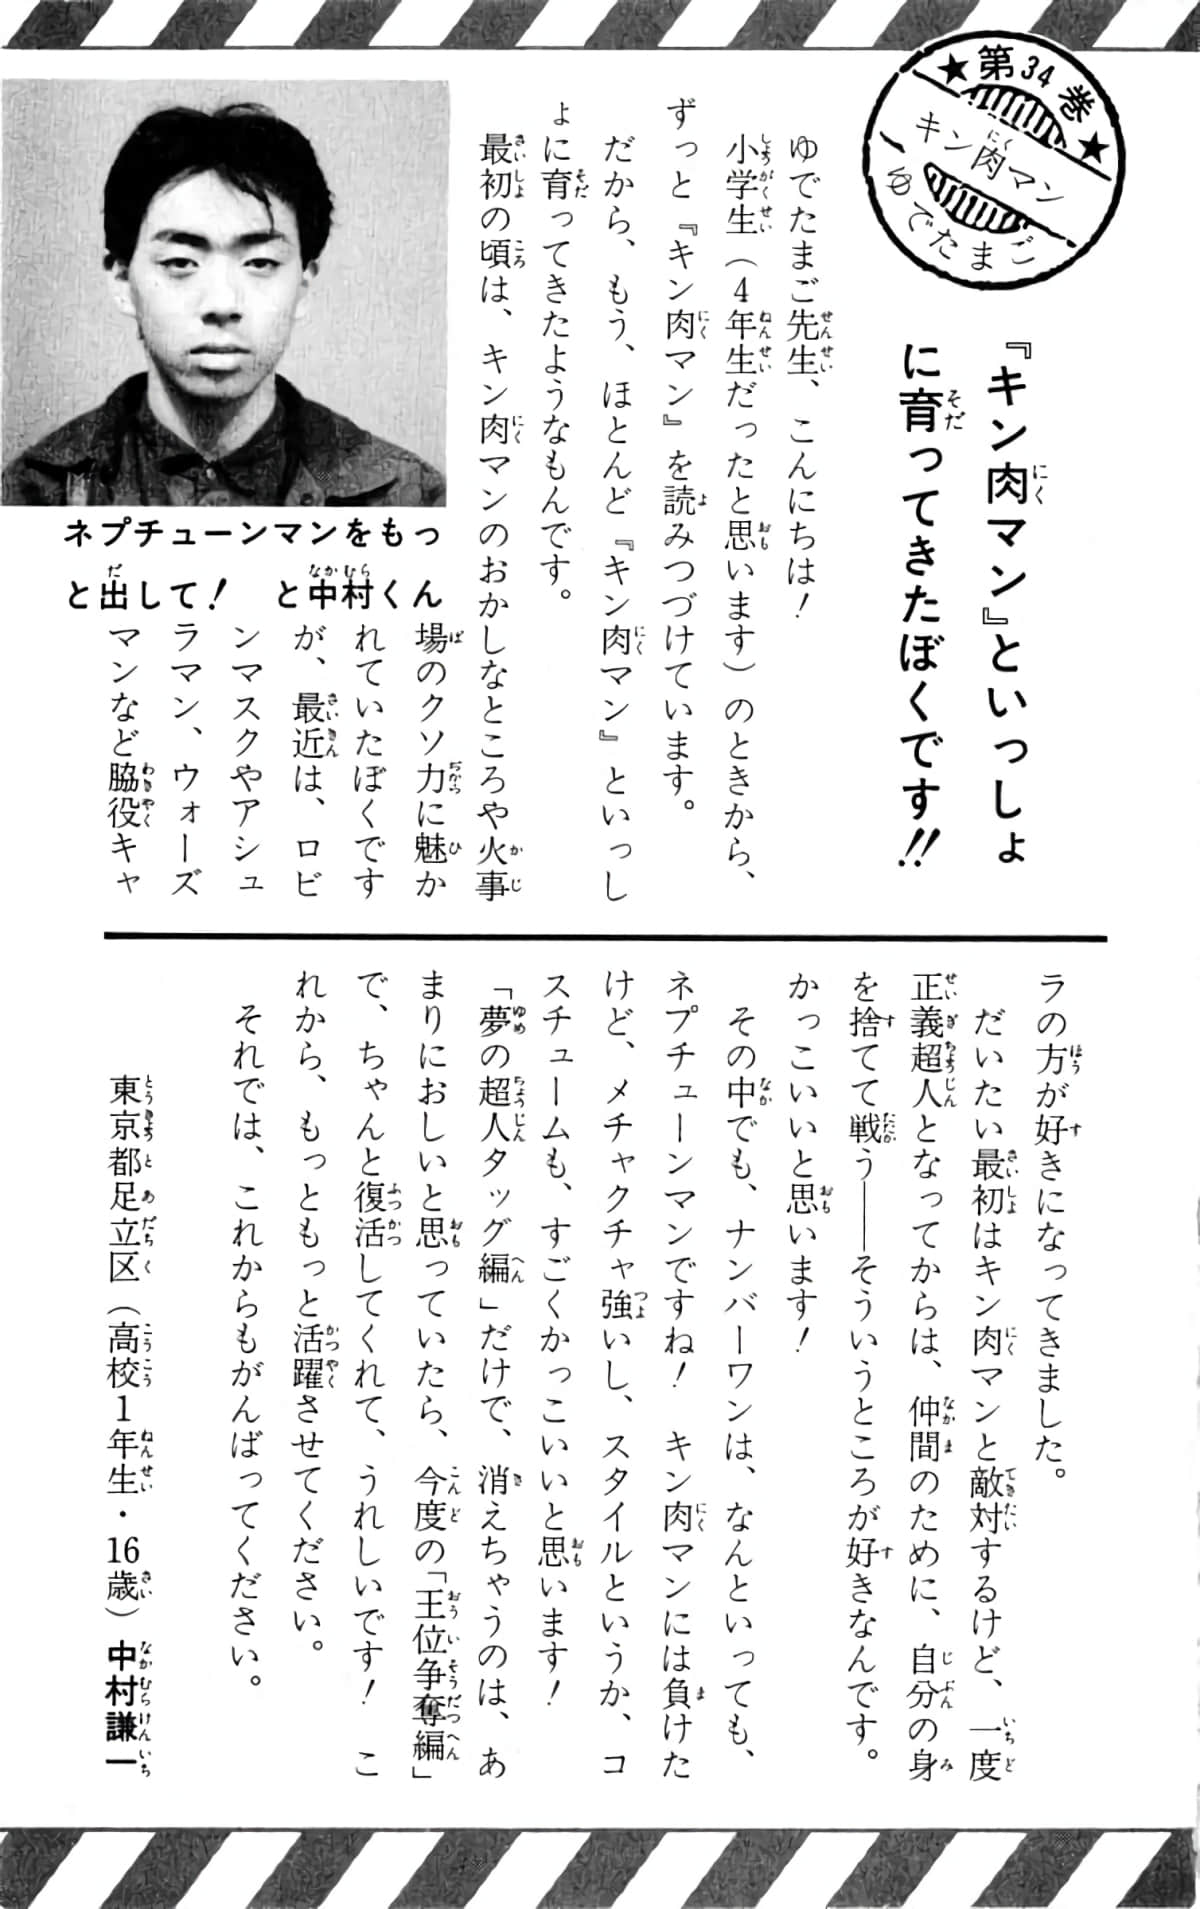 ★第34巻★
キン肉マン
ゆでたまご
『キン肉マン』といっしょ
に育ってきたぼくです!!
ゆでたまご先生、こんにちは!
小学生(4年生だったと思います)のときから、
ずっと『キン肉マン』を読みつづけています。
だから、もう、ほとんど『キン肉マン』といっし
ょに育ってきたようなもんです。
最初の頃は、キン肉マンのおかしなところや火事
場のクソ力に魅か
れていたぼくです
が、最近は、ロビ
ンマスクやアシュ
ラマン、ウォーズ
マンなど脇役キャ
ネプチューンマンをもっ
と出して! と中村くん
ラの方が好きになってきました。
だいたい最初はキン肉マンと敵対するけど、一度
正義超人となってからは、仲間のために、自分の身
を捨てて戦う――そういうところが好きなんです。
かっこいいと思います!
その中でも、ナンバーワンは、なんといっても、
ネプチューンマンですね! キン肉マンには負けた
けど、メチャクチャ強いし、スタイルというか、コ
スチュームも、すごくかっこいいと思います!
「夢の超人タッグ編」だけで、消えちゃうのは、あ
まりにおしいと思っていたら、今度の「王位争奪編」
で、ちゃんと復活してくれて、うれしいです! こ
れから、もっともっと活躍させてください。
それでは、これからもがんばってください。
東京都足立区(高校1年生・16歳)中村謙一